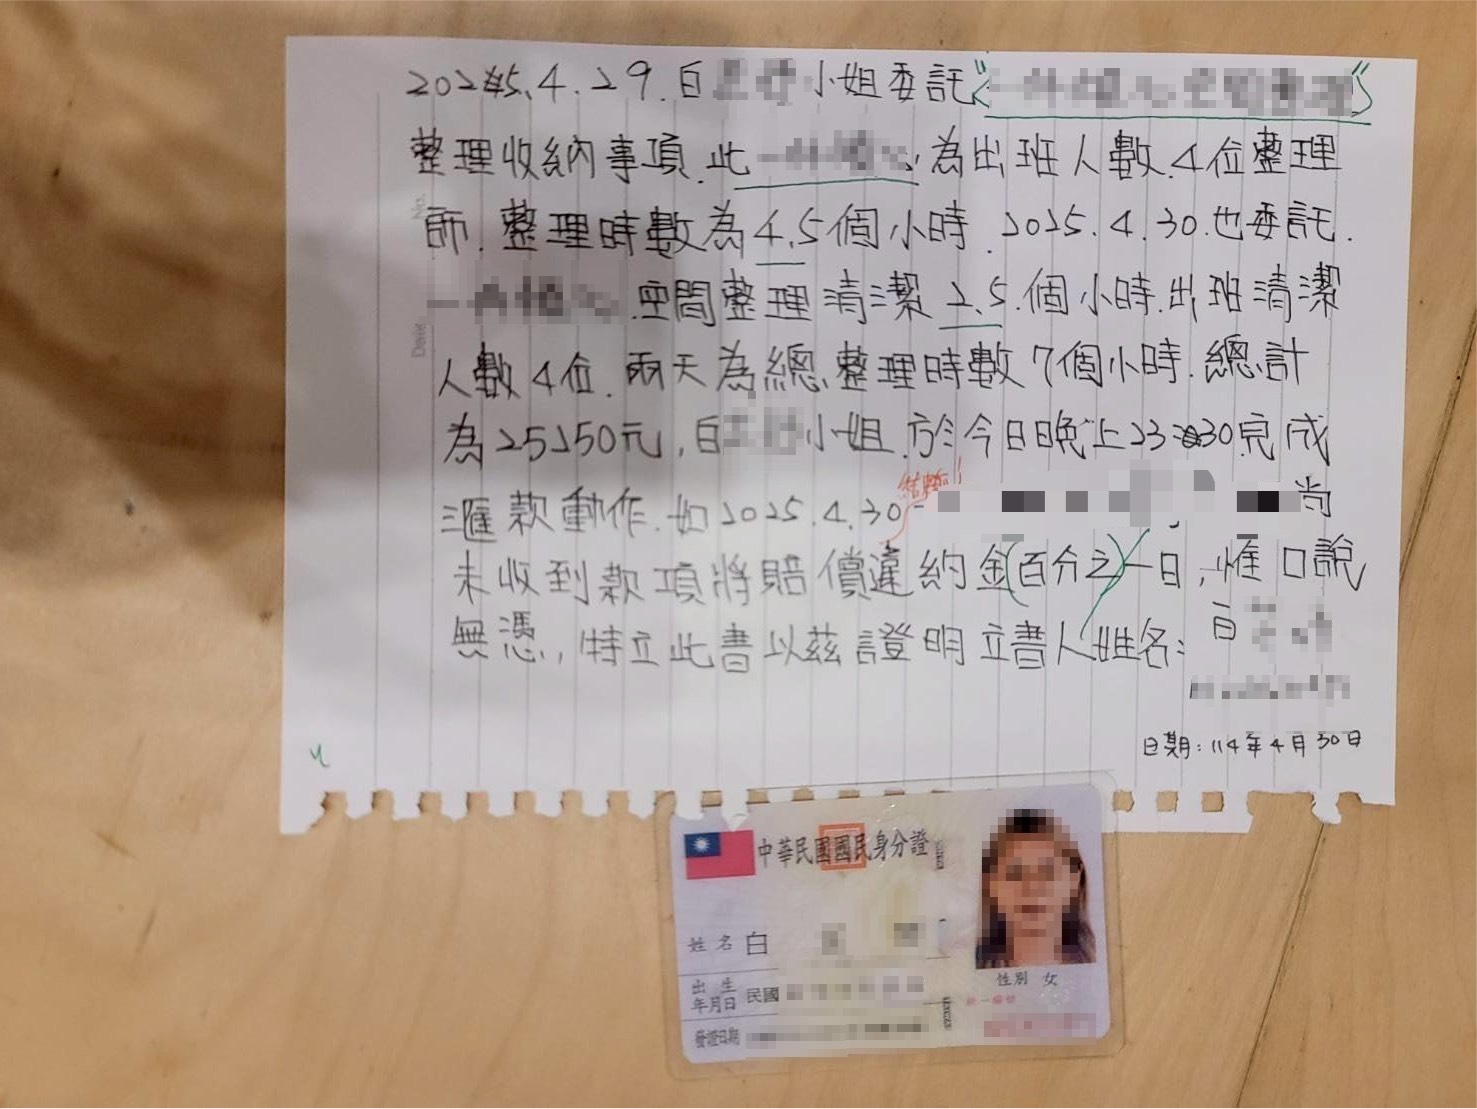 2025.4.29.白 小姐委託“ ”
整理收納事項.此 為出班人數.4位整理
師.整理時數為4.5個小時.2025.4.30.也委託.
.空間整理清潔2.5.個小時.出班清潔
人數4位.兩天為總整理時數7個小時.總計
為25250元,白 小姐.於今日晚上23:30完成
匯款動作.如2025.4.30 尚
未收到款項將賠償違約金(百分之)一日,惟口說
無憑,特立此書以茲證明立書人姓名:白
日期:114年4月30日
No.
Date
中華民國國民身分證
姓名 白
出生年月日 民國
性別 女
發證日期
統一編號